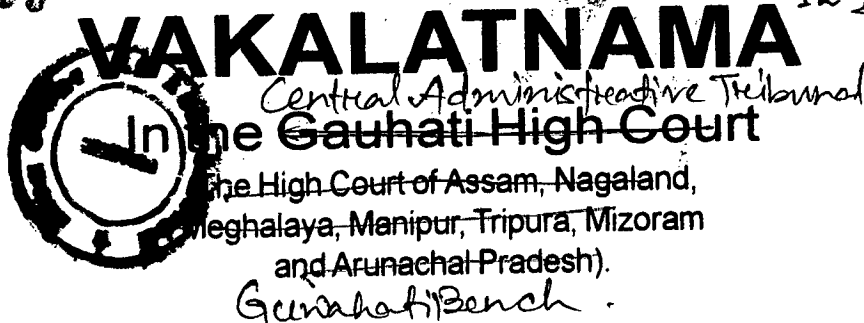 VAKALATNAMA
Central Administrative Tribunal
In the Gauhati High Court
The High Court of Assam, Nagaland,
Meghalaya, Manipur, Tripura, Mizoram
and Arunachal Pradesh).
Guwahati Bench.